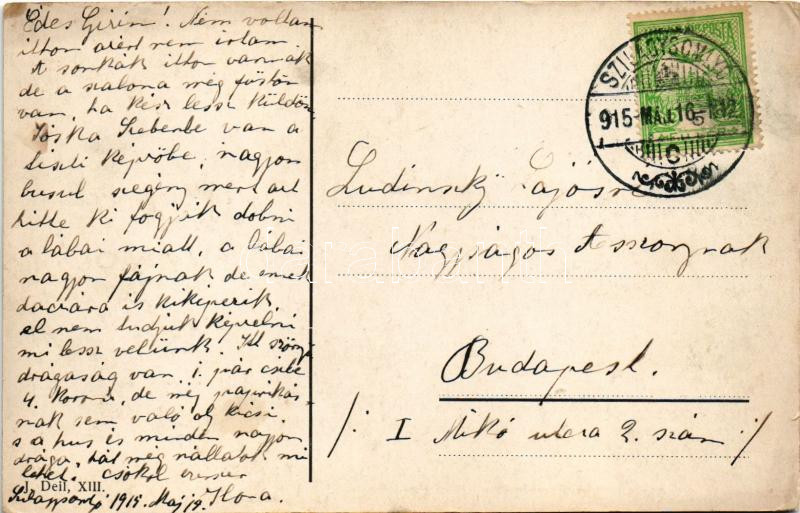 Édes Girim! Nem voltam
itton azért nem irtam.
A sonkák itton vannak
de a szalona még füstön
van, ha kész lessz küldöm.
Jóska Szebenbe van a
tiszti képzőbe, nagyon
busul szegény mert azt
hitte ki fogják dobni
a lábai miatt, a lábai
nagyon fájnak de ennek
daczára is kiképezik
el nem tudjuk képzelni
mi lessz velünk. Itt szörnyű
drágaság van, 1. pár csibe
4. korona, de még paprikás
nak sem való oly kicsi.
s a hus és minden nagyon
drága, hát még nállatok mi
lehet. csókol
Ilona.
1915. Maj 19.
J. Deil, XIII.
SZILÁGYSOMLYÓ
915 MÁJ. 16
Ludinszky Lajosné
Nagyságos Asszonynak
Budapest.
/: I Mikó utcza 2. szám :/